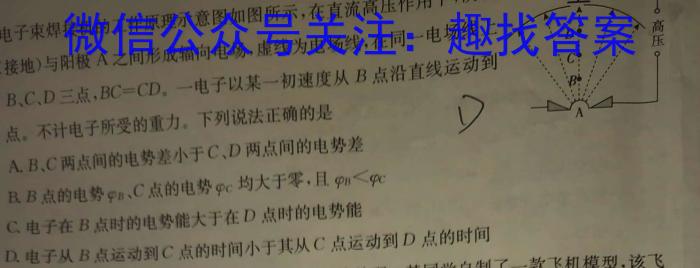 微信公众号关注：趣找答案
电子束焊 原理示意图如图所示，在直流高压作用下
接地）与阳极A之间形成辐向电场，虚线为电场线，在同一电场线
B、C、D三点，BC=CD。一电子以某一初速度从B点沿直线运动到
点。不计电子所受的重力。下列说法正确的是
A. B、C两点间的电势差小于C、D两点间的电势差
B. B点的电势φB、C点的电势φC均大于零，且φB<φC
C. 电子在B点时的电势能大于在D点时的电势能
D. 电子从B点运动到C点的时间小于其从C点运动到D点的时间
同学自制了一款飞机模型，该飞
高压
C
B
A
D